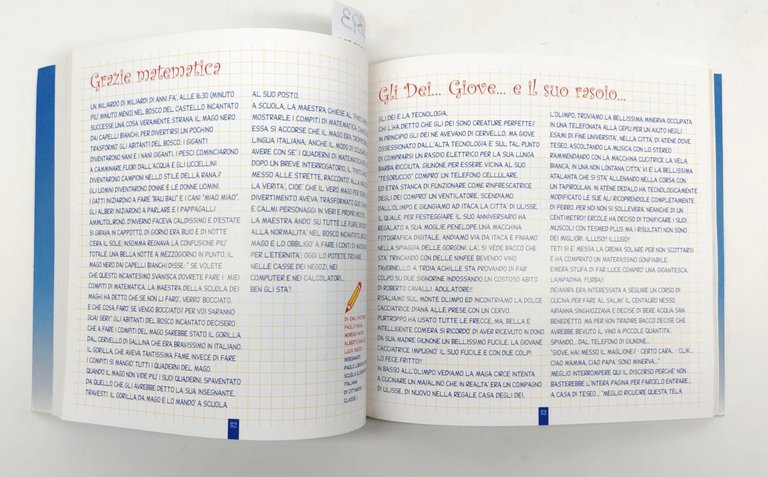 Grazie matematica
UN MILIARDO DI MILIARDI DI ANNI FA', ALLE 16:30 (MINUTO
PIU' MINUTO MENO) NEL BOSCO DEL CASTELLO INCANTATO
SUCCESSE UNA COSA VERAMENTE STRANA IL MAGO NERO
DAI CAPELLI BIANCHI, PER DIVERTIRSI UN POCHINO
TRASFORMO' GLI ABITANTI DEL BOSCO. I GIGANTI
DIVENTARONO NANI E I NANI GIGANTI, I PESCI COMINCIARONO
A CAMMINARE FUORI DALL'ACQUA E GLI UCCELLINI
DIVENTARONO CAMPIONI NELLO STILE DELLA RANA.
GLI UOMINI DIVENTARONO DONNE E LE DONNE UOMINI.
I GATTI INIZIARONO A FARE "BAU BAU" E I CANI "MIAO MIAO".
GLI ALBERI INIZIARONO A PARLARE E I PAPPAGALLI
AMMUTOLIRONO. D'INVERNO FACEVA CALDISSIMO E D'ESTATE
SI GIRAVA IN CAPPOTTO, DI GIORNO ERA BUIO E DI NOTTE
C'ERA IL SOLE: INSOMMA REGNAVA LA CONFUSIONE PIU'
TOTALE. UNA BELLA NOTTE A MEZZOGIORNO IN PUNTO, IL
MAGO NERO DAI CAPELLI BIANCHI DISSE: " SE VOLETE
CHE QUESTO INCANTESIMO SVANISCA DOVRETE FARE I MIEI
COMPITI DI MATEMATICA. LA MAESTRA DELLA SCUOLA DEI
MAGHI HA DETTO CHE SE NON LI FARO', VERRO' BOCCIATO.
E CHE COSA FARO' SE VENGO BOCCIATO? PER VOI SARANNO
GUAI SERI!" GLI ABITANTI DEL BOSCO INCANTATO DECISERO
CHE A FARE I COMPITI DEL MAGO SAREBBE STATO IL GORILLA
DAL CERVELLO DI GALLINA CHE ERA BRAVISSIMO IN ITALIANO.
IL GORILLA, CHE AVEVA TANTISSIMA FAME INVECE DI FARE
I COMPITI SI MANGIO' TUTTI I QUADERNI DEL MAGO.
QUANDO IL MAGO NON VIDE PIU' I SUOI QUADERNI, SPAVENTATO
DA QUELLO CHE GLI AVREBBE DETTO LA SUA INSEGNANTE,
TRAVESTI' IL GORILLA DA MAGO E LO MANDO' A SCUOLA
AL SUO POSTO.
A SCUOLA, LA MAESTRA CHIESE AL
MOSTRARLE I COMPITI DI MATEMATICA.
ESSA SI ACCORSE CHE IL MAGO ERA
LINGUA ITALIANA; ANCHE IL MODO DI
AVERE CON SE' I QUADERNI DI MATEMATICA
DOPO UN BREVE INTERROGATORIO, IL
MESSO ALLE STRETTE, RACCONTO' ALLA
LA VERITA', CIOE' CHE IL VERO MAGO PER
DIVERTIMENTO AVEVA TRASFORMATO QUEI
E CALMI PERSONAGGI IN VERI E PROPRI
LA MAESTRA ANDO' SU TUTTE LE FURIE,
ALLA NORMALITA' NEL BOSCO INCANTATO,
MAGO E LO OBBLIGO' A FARE I CONTI DI
PER L'ETERNITA'; OGGI LO POTETE TROVARE
NELLE CASSE DEI NEGOZI, NEI
COMPUTER E NEI CALCOLATORI...
BEN GLI STA!
52
Gli Dei... Giove... e il suo rasoio...
GLI DEI E LA TECNOLOGIA.
CHI L'HA DETTO CHE GLI DEI SONO CREATURE PERFETTE?
IN PRINCIPIO GLI DEI NE AVEVANO DI CERVELLO; MA GIOVE
OSSESSIONATO DALL'ALTA TECNOLOGIA E SUL TAL PUNTO
DI COMPRARSI UN RASOIO ELETTRICO PER LA SUA LUNGA
BARBA RICCIUTA, GIUNONE PER ESSERE VICINA AL SUO
"TESORUCCIO" COMPRO' UN TELEFONO CELLULARE,
ED ETRA STANCA DI FUNZIONARE COME RINFRESCATRICE
DEGLI DEI COMPRO' UN VENTILATORE. SCENDIAMO
DALL'OLIMPO E GIUNGIAMO AD ITACA LA CITTA' DI ULISSE,
IL QUALE, PER FESTEGGIARE IL SUO ANNIVERSARIO HA
REGALATO A SUA MOGLIE PENELOPE UNA MACCHINA
FOTOGRAFICA DIGITALE. ANDIAMO VIA DA ITACA E FINIAMO
NELLA SPIAGGIA DELLE GORGONI. LA', SI VEDE BACCO CHE
STA' TRINCANDO CON DELLE NINFEE BEVENDO VINO
TAVERNELLO. A TROIA ACHILLE STA PROVANDO DI FAR
COLPO SU DUE SIGNORINE INDOSSANDO UN COSTOSO ABITO
DI ROBERTO CAVALLI. ADULATORE!!
RISALIAMO SUL MONTE OLIMPO ED INCONTRIAMO LA DOLCE
CACCIATRICE DIANA ALLE PRESE CON UN CERVO.
PURTROPPO HA USATO TUTTE LE FRECCE, MA, BELLA E
INTELLIGENTE COM'ERA SI RICORDO' DI AVER RICEVUTO IN DONO
DA SUA MADRE GIUNONE UN BELLISSIMO FUCILE. LA GIOVANE
CACCIATRICE IMPUGNO' IL SUO FUCILE E CON DUE COLPI
LO FECE FRITTO!!
IN BASSO ALL'OLIMPO VEDIAMO LA MAGA CIRCE INTENTA
A CUCINARE UN MAIALINO CHE IN REALTA' ERA UN COMPAGNO
DI ULISSE. DI NUOVO NELLA REGALE CASA DEGLI DEI,
L'OLIMPO, TROVIAMO LA BELLISSIMA MINERVA OCCUPATA
IN UNA TELEFONATA ALLA CEPU PER UN AIUTO NEGLI
ESAMI DI FINE UNIVERSITA'. NELLA CITTA' DI ATENE DOVE
TESEO, ASCOLTANDO LA MUSICA CON LO STEREO
RAMMENDANDO CON LA MACCHINA CUCITRICE LA VELA
BIANCA, IN UNA NON LONTANA CITTA' VI E' LA BELLISSIMA
ATALANTA CHE SI STA' ALLENANDO NELLA CORSA CON
UN TAPIROULAN. IN ATENE DEDALO HA TECNOLOGICAMENTE
MODIFICATO LE SUE ALI RICOPRENDOLE COMPLETAMENTE
DI FERRO, PER NOI NON SI SOLLEVERA' NEANCHE DI UN
CENTIMETRO! ERCOLE HA DECISO DI TONIFICARE I SUOI
MUSCOLI CON TESMED PLUS MA I RISULTATI NON SONO
DEI MIGLIORI. ILLUSO! ILLUSO!
TETI SI E' MESSA LA CREMA SOLARE PER NON SCOTTARSI
E HA COMPRATO UN MATERASSINO GONFIABILE.
EMERA STUFA DI FAR LUCE COMPRO' UNA GIGANTESCA
LAMPADINA, FURBA!!
DEIANIRA ERA INTERESSATA A SEGUIRE UN CORSO DI
CUCINA PER FARE AL SALMI' IL CENTAURO NESSO.
ARIANNA SINGHIOZZAVA E DECISE DI BERE ACQUA SAN
BENEDETTO. MA PER NON TRADIRE BACCO DECISE CHE
AVREBBE BEVUTO IL VINO A PICCOLE QUANTITA'.
SPIEDO... DAL TELEFONO DI GIUNONE...
"GIOVE, HAI MESSO IL MAGLIONE? - CERTO CARA... - CLIK...
CIAO MAMMA, CIAO PAPA'. SONO MINERVA..."
MEGLIO INTERROMPERE QUI IL DISCORSO PERCHE' NON
BASTEREBBE L'INTERA PAGINA PER FARCELO ENTRARE...
A CASA DI TESEO... "MEGLIO RICUCIRE QUESTA TELA